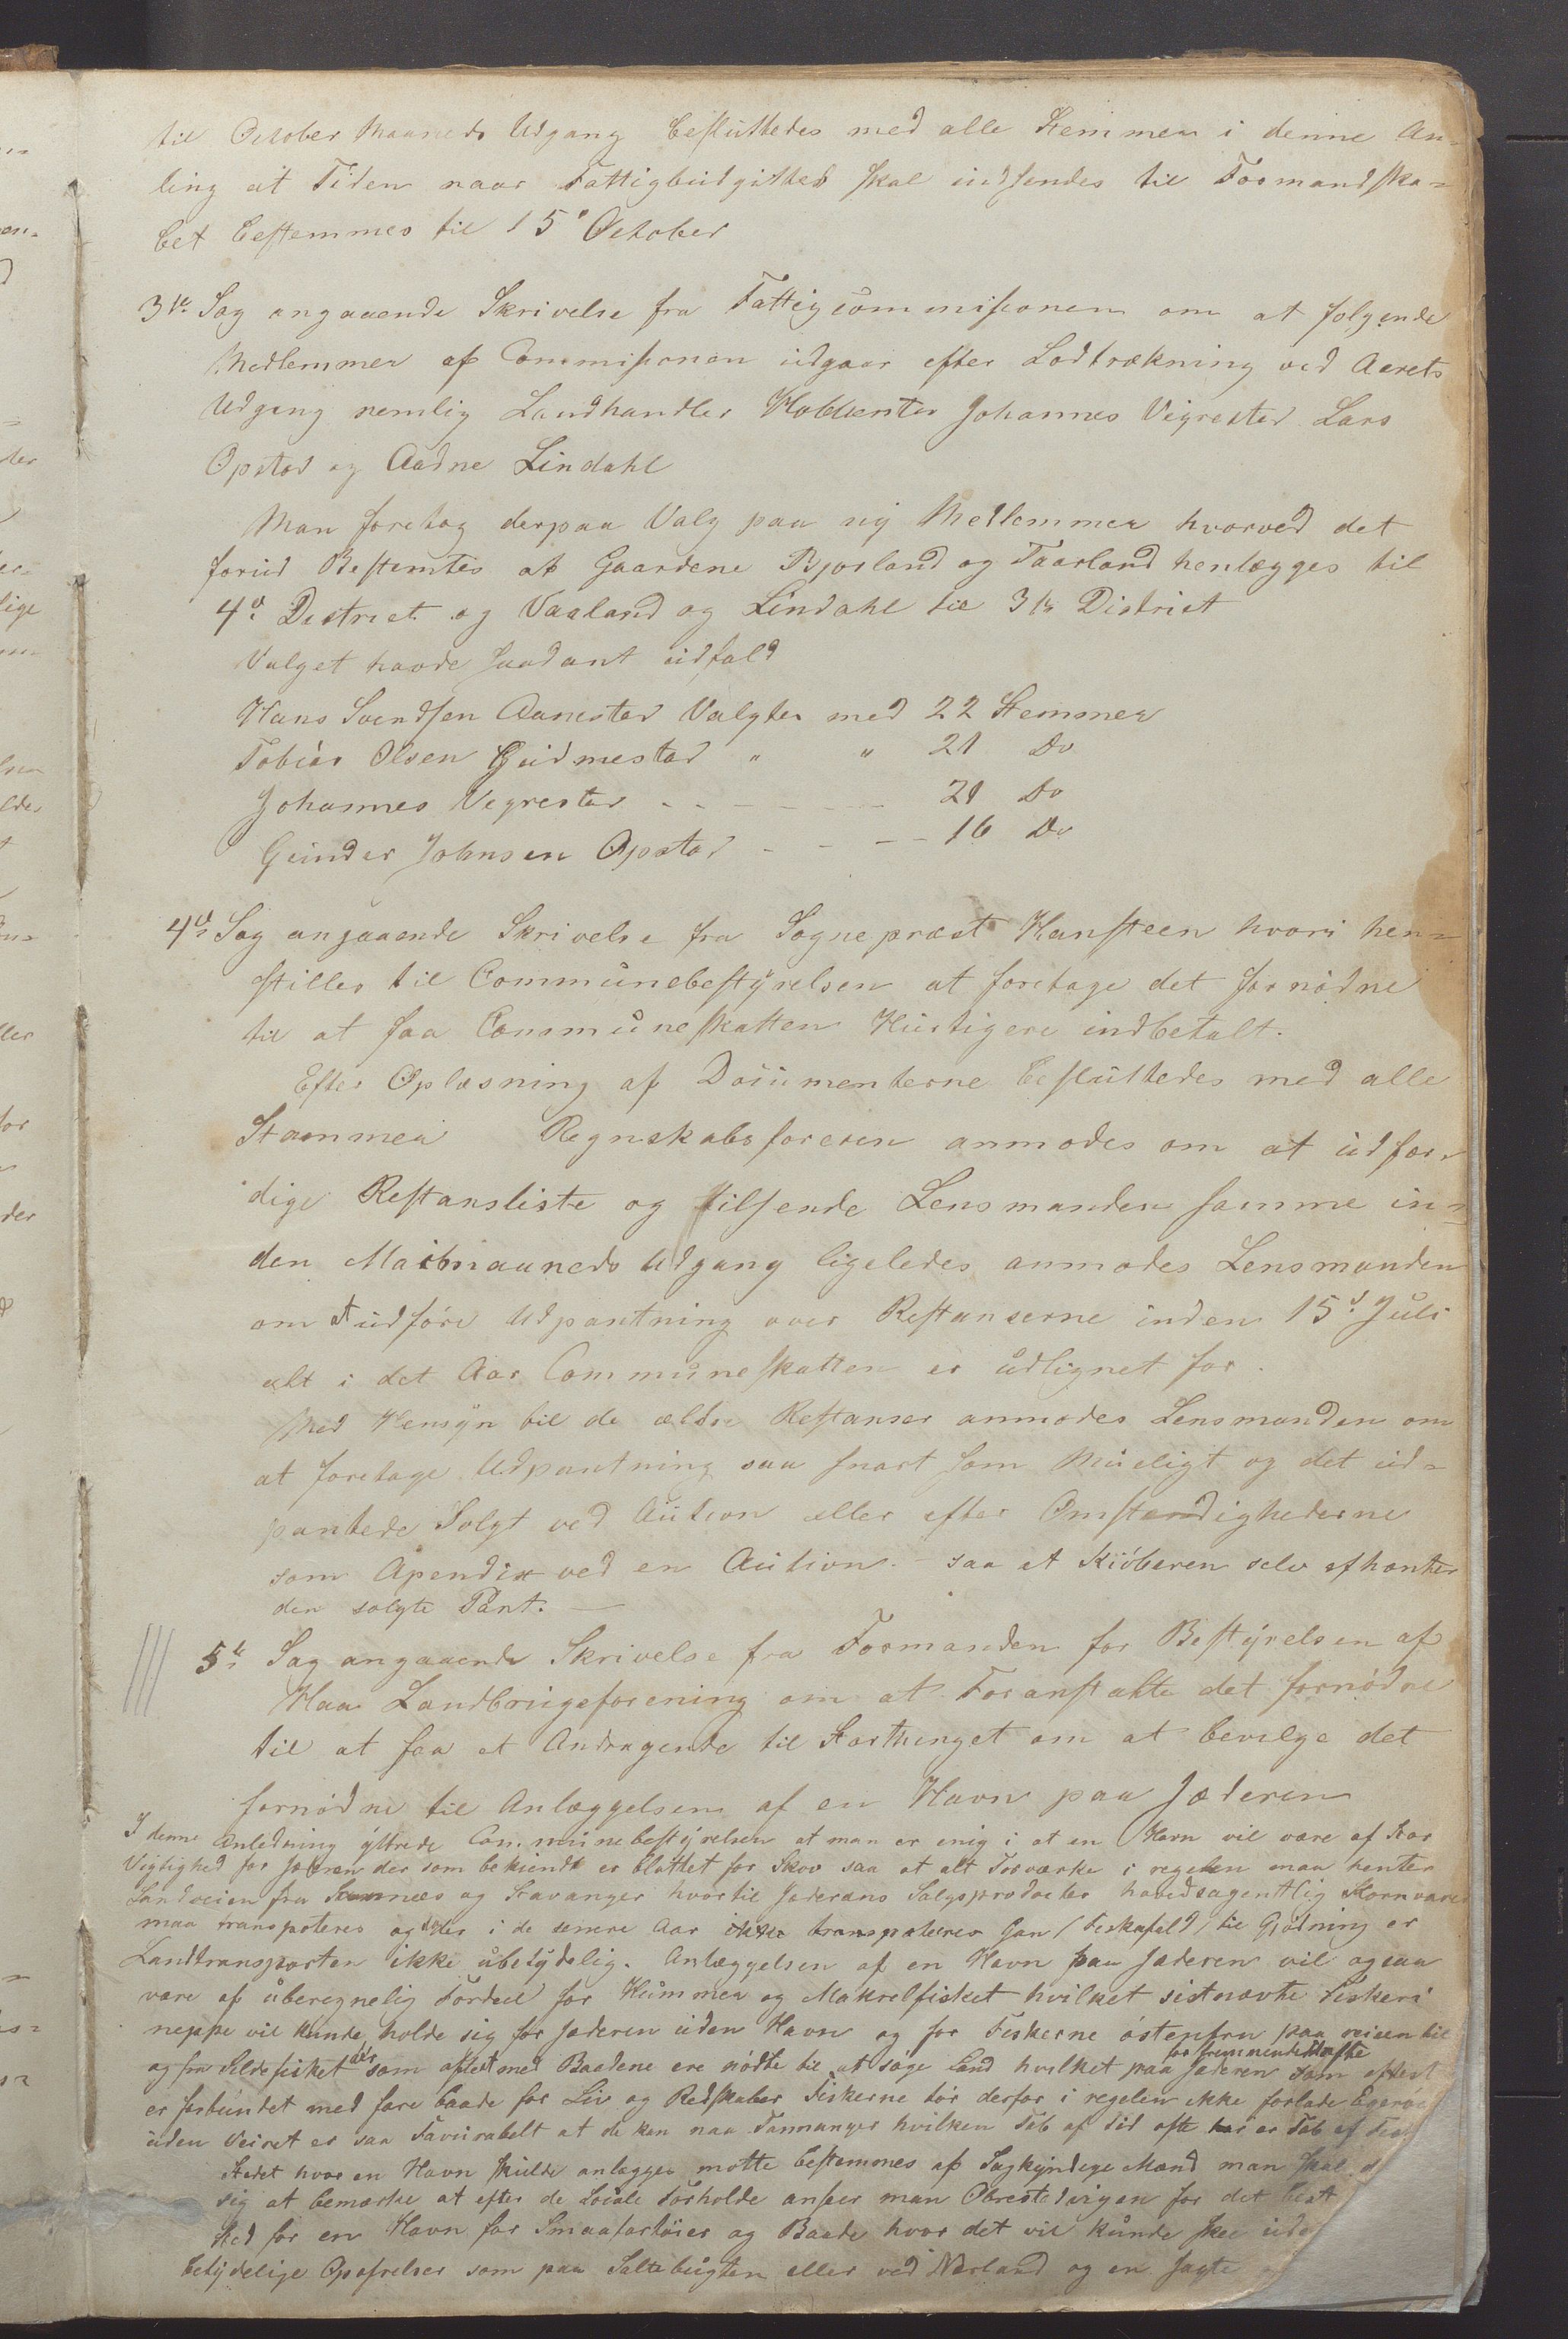 til October Maaneds Udgang besluttedes med alle Stemmer i denne An-
ling at Tiden naar Fattigbudgittet skal indsendes til Formandska-
bet bestemmes til 15de October
3die Sag angaaende Skrivelse fra Fattigcommissionen om at følgende
Medlemmer af Commissionen udgaar efter Lodtrækning ved Aarets
Udgang nemlig Landhandler Holdenter Johannes Vigrestad Lars
Opstad og Aadne Lindahl
Man foretog derpaa Valg paa ny Medlemmer hvorved det
forud Bestemtes at Gaardene Bjorland og Taarland henlægges til
4de District og Vaaland og Lindahl til 3die District
Valget havde saadant udfald
Hans Svendsen Aanestad Valgtes med 22 Stemmer
Tobias Olsen Gudmestad " " 21 Do
Johannes Vegrestad - - - - - 21 Do
Gunder Johnsen Opstad - - - - 16 Do
4de Sag angaaende Skrivelse fra Sognepræst Hansteen hvori hen-
stilles til Communebestyrelsen at foretage det fornødne
til at faa Communeskatten Hurtigere indbetalt.
Efter Oplæsning af Documenterne besluttedes med alle
Stemmer Regnskabsføreren anmodes om at udfær-
dige Restansliste og tilsende Lensmanden samme in-
den Maimaaneds Udgang ligeledes anmodes Lensmanden
om at udføre Udpantning over Restanserne inden 15de Juli
alt i det Aar Communeskatten er udlignet for.
Med Hensyn til de ældre Restanser anmodes Lensmanden om
at foretage Udpantning saa snart som Mueligt og det ud-
pantede Solgt ved Aution eller efter Omstændighederne
som Apendix ved en Aution - saa at Kiöberen selv afhenter
den solgte Pant. —
5te Sag angaaende Skrivelse fra Formanden for Bestyrelsen af
Haa Landbrugsforening om at Foranstalte det fornødne
til at faa et Andragende til Storthinget om at bevilge det
fornødne til Anlæggelsen af en Havn paa Jæderen
I denne Anledning yttrede Communebestyrelsen at man er enig i at en Havn vil være af Stor
Vigtighed for Jæderen der som bekiendt er blottet for Skov saa at alt Torværke i regelen maa hentes
Landveien fra Sannæs og Stavanger hvortil Jæderens Salgsprodocter hovedsagentlig Kornvarer
maa transpoteres og der i de senere Aar ikke transpoteeres Gan (Fiskafald) til Gjødning er
Landtransporten ikke ubetydelig. Anlæggelsen af en Havn paa Jæderen vil ogsaa
være af uberegnelig Fordeel for Hummer og Makrelfisket hvilket sistnævte Fiskeri
neppe vil kunde holde sig for Jæderen uden Havn og for Fiskerne østenfra paa reisen til
og fra Sildefisket der som oftest med Baadene ere nødte til at søge Land hvilket paa Jæderen som oftest
er forbundet med fare baade for Liv og Redskaber Fiskerne tør derfor i regelen ikke forlade Egerø
uden Veiret er saa Favurabelt at de kan naa Tannanger hvilken Tab af Tid ofte er Tab af
Stedet hvor en Havn skulde anlægges motte bestemmes af Sagkyndige Mænd man skal
sig at bemærke at efter de Locale Forholde anseer man Obrestadvigen for det best
Sted for en Havn for Smaafartøier og Baade hvor det vil kunde skee
betydelige Opofrelser som paa Saltebugten eller ved Nærland og en Jagte